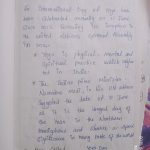 International Day of Yoga has
been celebrated annually on 21 June
in
united nations General Assembly
in 2014
* Yoga is physical, mental and
Spiritual practice which
in India
* The Indian prime minister
Narendra modi, in his UN address
suggested the date of 21 June
as it is the longest day of
the year in the Northern
Hemisphere and shares a special
significance in many parts of the world